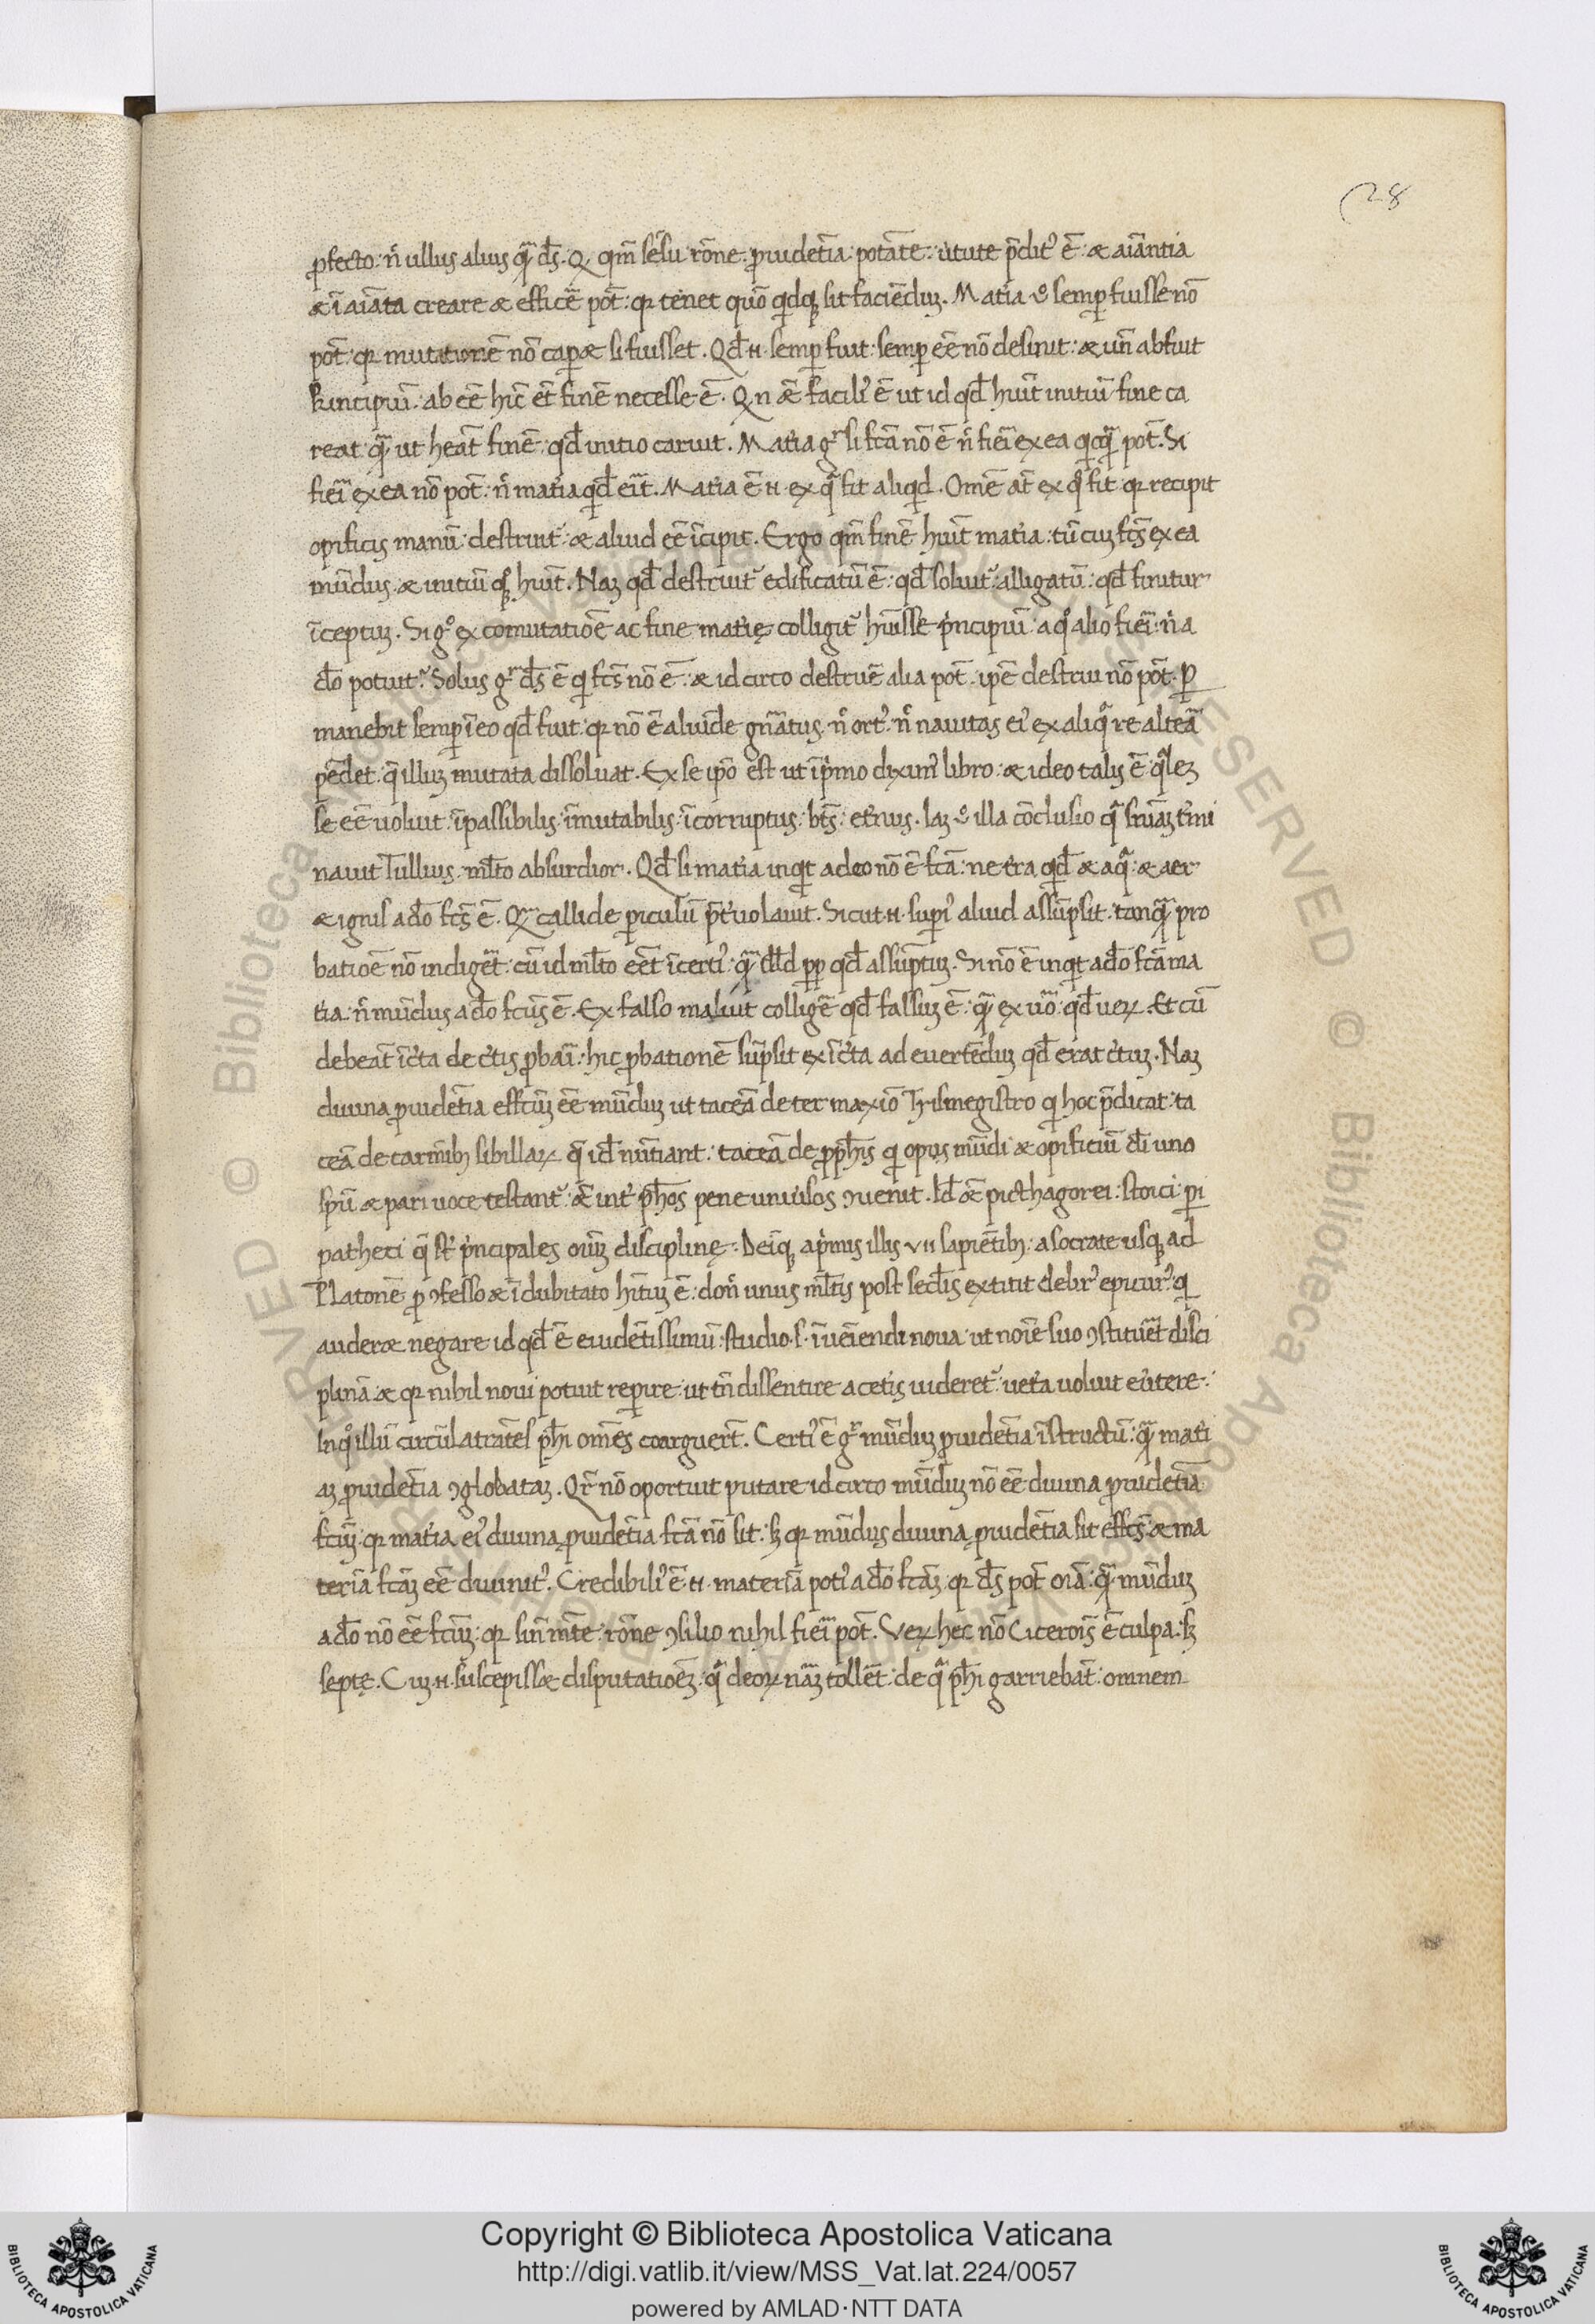 28
ꝓfecto: n̄ ullus alius qͣ̄ ds̄. Qꝛ qm̄ sēsu rōne. ꝓuidētia: potāte: ùtute p̄ditꝰ ē: æ aiāntia
æ īaiāta creare æ efficē pōt: qꝛ tenet quō qͥdqꝫ sit faciēduꝫ. Matia ůo semꝑ fuisse nō
pōt: qꝛ mutationē nō caꝑæ si fuisset. Qd̄ .n. semꝑ fuit: semꝑ eē nō desinit: æ un̄ abfuit
principiū: ab eē hīc et̄ finē necesse ē. Qn ǣ faciliꝰ ē ut id qd̄ huīt initiū fine ca
reat qͣ̄ ut heat̄ finē: qd̄ initio caruit. Matia gͦ si fc̄a nō ē n̄ fieī ex ea qͥcqͣ̄ pōt. Si
fieī ex ea nō pōt: n̄ matia qͥd̄ eīt. Matia ē .n. ex qͣ fit aliqͥd. Om̄e āt ex qͦ fit qꝛ recipit
opificis manū: destruit᷑ æ aliud eē īcipit. Ergo qm̄ finē huīt matia: tū cuꝫ fc̄s ex ea
mūdus: æ initiū qͦqꝫ huīt. Naꝫ qd̄ destruit᷑ edificatū ē: qd̄ soluit᷑ alligatū: qd̄ finitur
īceptuꝫ. Si gͦ ex comutatiōe ac fine matię colligit᷑ huīsse pͥncipiū: a qͦ alio fieī: n̄ a
do̅ potuit? Solus gͦ ds̄ ē qͥ fc̄s nō ē: æ idcirco destruē alia pōt. ip̄e destrui nō pōt. ꝑ
manebit semꝑ ī eo qd̄ fuit: qꝛ nō ē aliūde gn̄atus. n̄ ortꝰ: n̄ nauitas eiꝰ ex aliqͣ re alteā
pēdet: q̄ illuꝫ mutata dissoluat. Ex se ip̄o est ut ī pͥmo diximꝰ libro: æ ideo talis ē qͣleꝫ
se eē uoluit: īpassibilis: īmutabilis: īcorruptus: bt̄s: et̓nus. Iaꝫ ůo illa cōclusio qͣ sn̄iaꝫ t̓mi
nauit Tullius. ml̄to absurdior. Qd̄ si matia inqͥt a deo nō ē fc̄a: ne t̓ra qͥd̄ æ aqͣ: æ aer
æ ignis a do̅ fc̄s ē. Qͣꝫ callide ꝑiculū p̄t̓uolauit. Sicut .n. suꝑiꝰ aliud assūpsit. tanqͣ̄ pro
batiōe nō indigēt: cū id ml̄to eēt īcertiꝰ: qͣ̄ ill̄d ꝓp̄ qd̄ assūptuꝫ. Si nō ē inqͥt a do̅ fc̄a ma
tia: n̄ mūdus a do̅ fc̄us ē. Ex falso maluit colligē qd̄ falsuꝫ ē: qͣ̄ ex u̓o: qd̄ ueꝝ. Et cū
debeat̄ īc̓ta de c̓tis ꝓbaī: hic ꝓbationē sūpsit ex īc̓ta ad euertēduꝫ qd̄ erat c̓tuꝫ. Naꝫ
diuina ꝓuidētia effcūꝫ eē mūduꝫ ut taceā de ter maxīo Trismegistro qͥ hoc p̄dicat: ta
ceā de carmīibꝫ sibillaꝝ q̄ id̄ nūtiant: taceā de ꝓph̄is qͥ opus mūdi æ opificiū di̅ uno
sp̄u æ pari uoce testant᷑: ǣ int̓ ph̄os pene uniu̓sos ꝯuenit. Id̄ ǣ picthagorei: stoici: ꝑi
patheci q̄ st̄ pͥncipales oiūꝫ disciplinę. Deīqꝫ a pͥmis illis VII sapiētibꝫ: a socrate usqꝫ ad
Platonē ꝓ ꝯfesso æ īdubitato hītuꝫ ē: don̄ unus ml̄tis post secl̄is extitit debrꝰ epicurꝰ: qͥ
auderæ negare id qd̄ ē euidētissimū: studio .s. īueīendi noua: ut noīe suo ꝯstituēt disci
plinā: æ qꝛ nihil noui potuit reꝑire: ut tn̄ dissentire a cetis uideret᷑ uet̓a uoluit eu̓tere.
In qͦ illū circūlatrātes ph̄i om̄es coarguert̄. Certiꝰ ē gͦ mūduꝫ ꝓuidētia īstructū: qͣ̄ mati
aꝫ ꝓuidētia ꝯglobataꝫ. Qͣr̄ nō oportuit putare idcirco mūduꝫ nō eē diuina ꝓuidētia
fcūꝫ: qꝛ matia eiꝰ diuina ꝓuidētia fc̄a nō sit: sꝫ qꝛ mūdus diuina ꝓuidētia sit effc̄s: æ ma
teriā fcāꝫ eē diuinitꝰ. Credibiliꝰ ē .n. materiā potiꝰ a do̅ fcāꝫ: qꝛ ds̄ pōt oīa: qͣ̄ mūduꝫ
a do̅ nō eē fcūꝫ: qꝛ sin̄ m̄te: rōne ꝯsilio nihil fieī pōt. Veꝝ hec nō Cicerōis ē culpa: sꝫ
septę. Cuꝫ .n. suscepissæ disputatiōeꝫ: qͣ deoꝝ nāꝫ tollēt: de qͣ ph̄i garriebāt: omnem
Copyright © Biblioteca Apostolica Vaticana
http://digi.vatlib.it/view/MSS_Vat.lat.224/0057
powered by AMLAD·NTT DATA